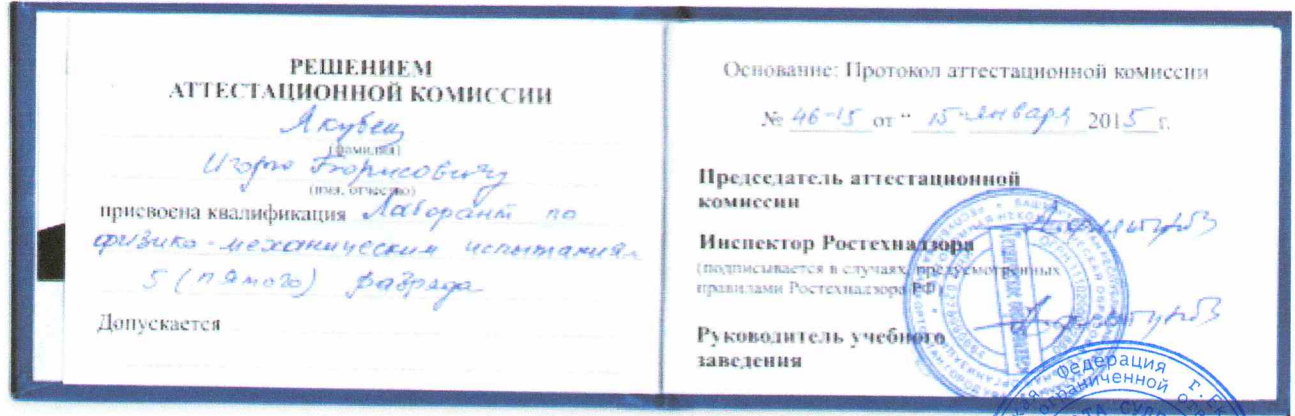 РЕШЕНИЕМ
АТТЕСТАЦИОННОЙ КОМИССИИ
Якубец
(фамилия)
Игорю Борисовичу
(имя, отчество)
присвоена квалификация Лаборант по
физико-механическим испытаниям
5 (пятого) разряда
Допускается
Основание: Протокол аттестационной комиссии
№ 46-15 от " 15 " января 2015 г.
Председатель аттестационной
комиссии
Инспектор Ростехнадзора
(подписывается в случаях, предусмотренных
правилами Ростехнадзора РФ)
Руководитель учебного
заведения
Федерация
ограниченной